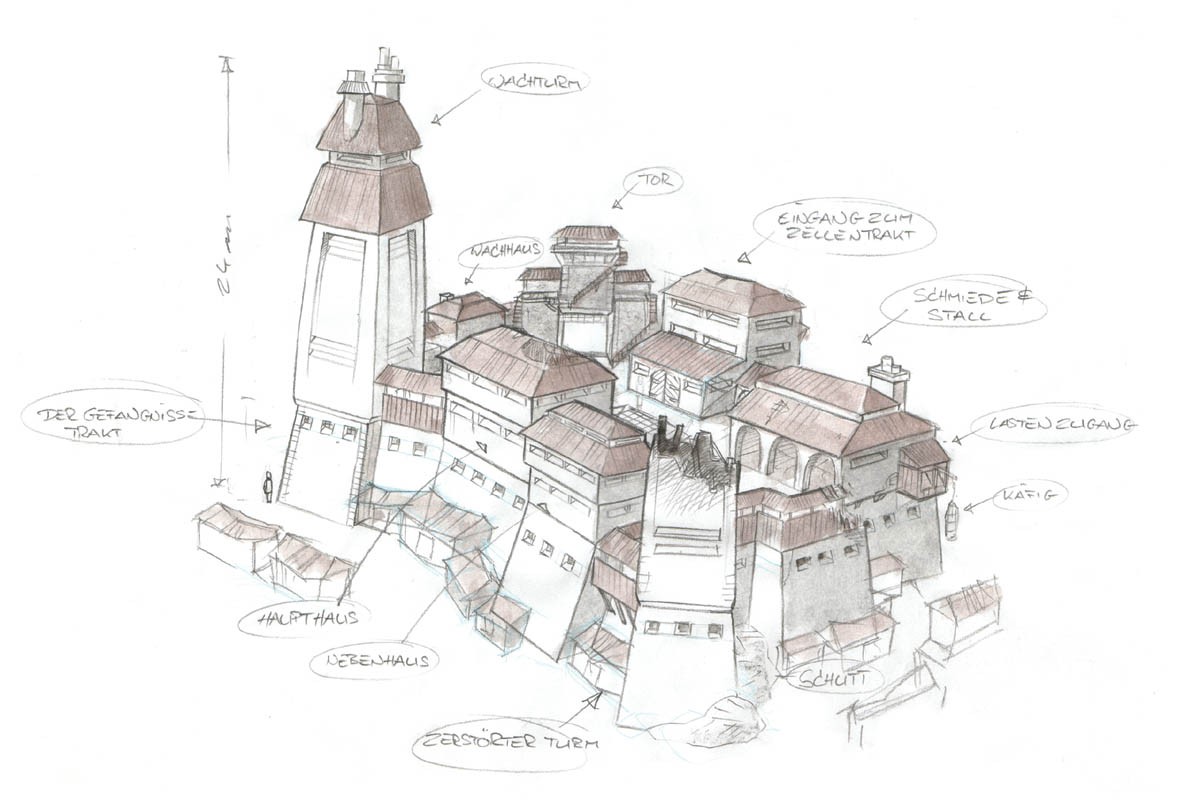 WACHTURM
TOR
EINGANG ZUM
ZELLENTRAKT
WACHHAUS
SCHMIEDE &
STALL
24 m
DER GEFANGNISSE
TRAKT
LASTENZUGANG
KÄFIG
HAUPTHAUS
NEBENHAUS
SCHUTT
ZERSTÖRTER TURM